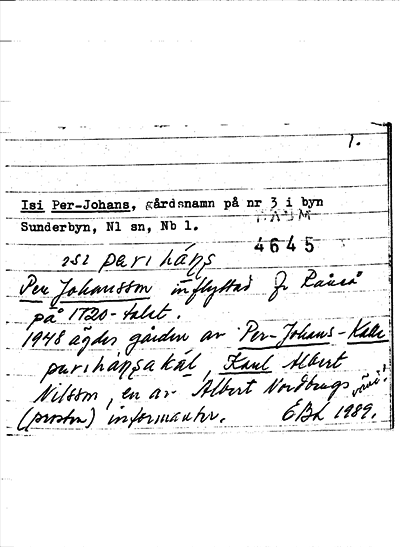 1.
Isi Per-Johans, gårdsnamn på nr 3 i byn
Sunderbyn, Nl sn, Nb l.
DAUM
4645
isi periháns
Per Johansson inflyttad fr Råneå
på 1720-talet.
1948 ägdes gården av Per-Johans-Kalle
perihánsakál, Karl Albert
Nilsson, en av Albert Nordbergs
(prosten) informanter. EBd 1989.